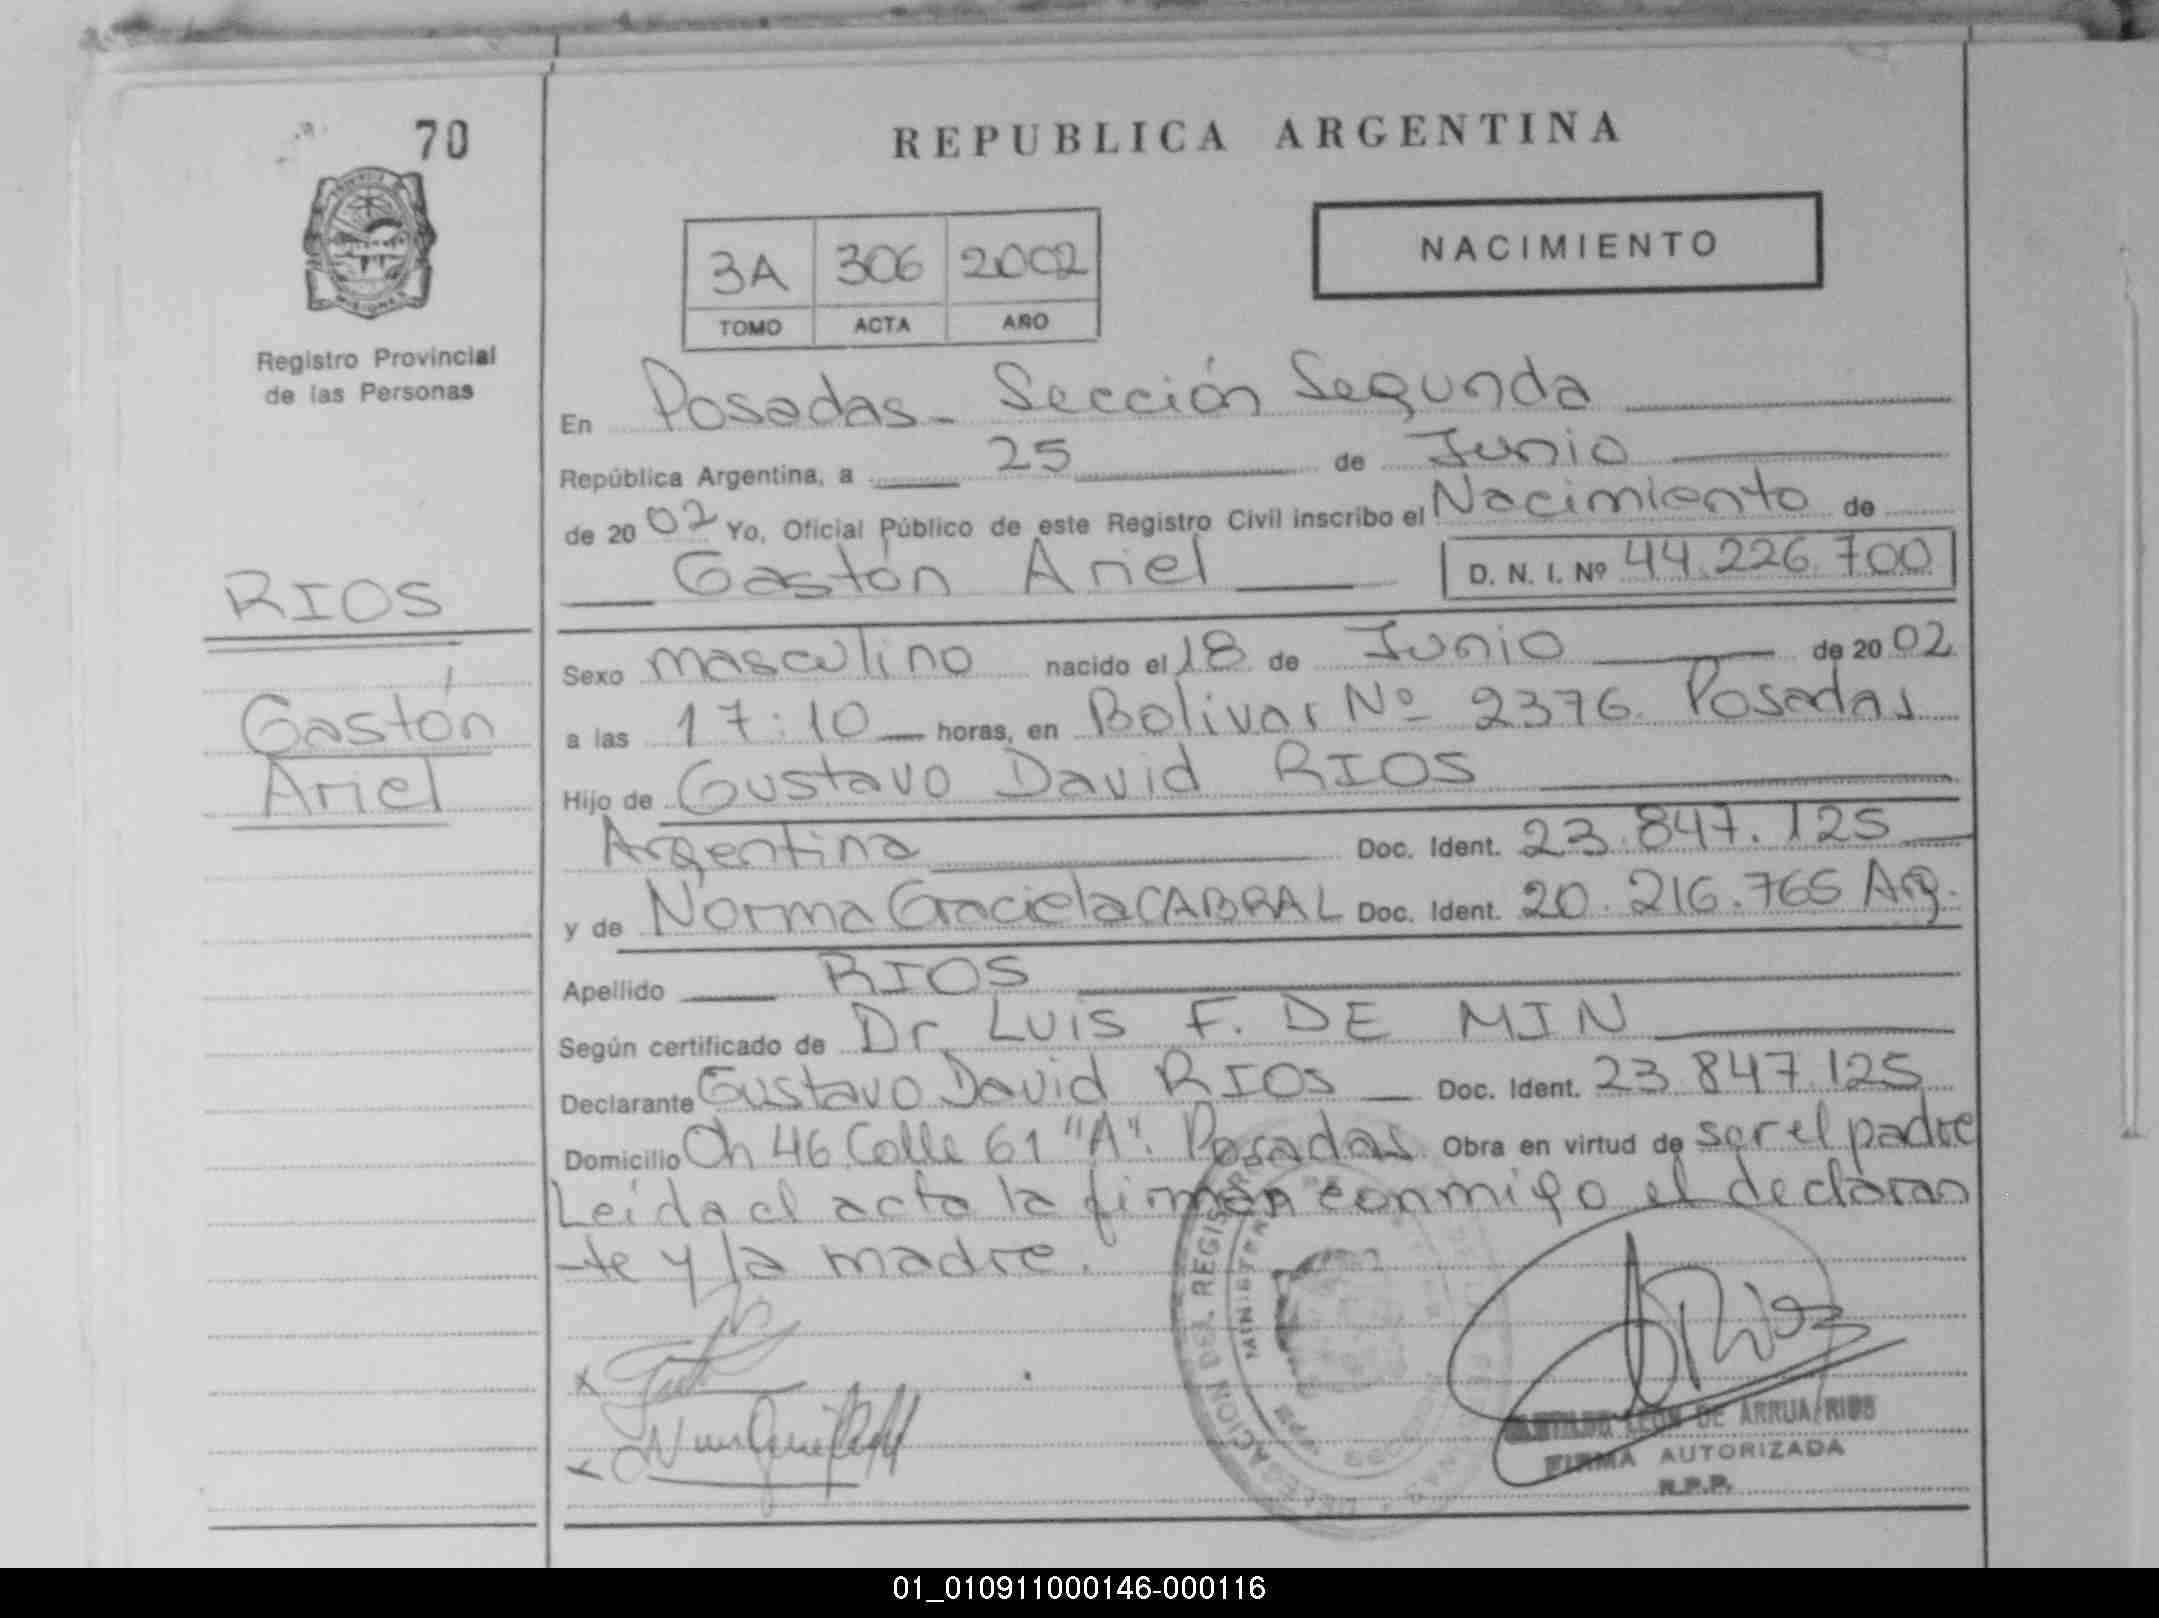 70
REPUBLICA ARGENTINA
NACIMIENTO
3A 306 2002
TOMO ACTA AÑO
Registro Provincial
de las Personas
En Posadas - Sección Segunda
República Argentina, a 25 de Junio
de 20 02 Yo, Oficial Público de este Registro Civil inscribo el Nacimiento de
Gastón Ariel D. N. I. Nº 44.226.700
RIOS
Gastón
Ariel
Sexo masculino nacido el 18 de Junio de 20 02
a las 17:10 horas, en Bolivar Nº 2376. Posadas
Hijo de Gustavo David RIOS
Argentina Doc. Ident. 23.847.125
y de Norma Graciela CABRAL Doc. Ident. 20.216.765 Arg.
Apellido RIOS
Según certificado de Dr LUIS F. DE MIN
Declarante Gustavo David RIOS Doc. Ident. 23.847.125
Domicilio Ch 46 Calle 61 "A". Posadas Obra en virtud de ser el padre
Leída el acta la firman conmigo el declaran
-te y la madre.
DELEGACION DEL REGIS
MINISTR
Rios
LEON DE ARRUA RIOS
FIRMA AUTORIZADA
R.P.P.
01_010911000146-000116